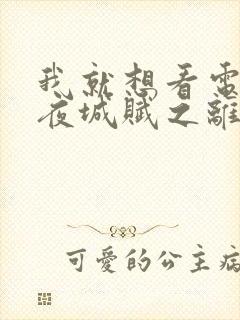 我就想看電
夜城賦之離
可愛的公主病